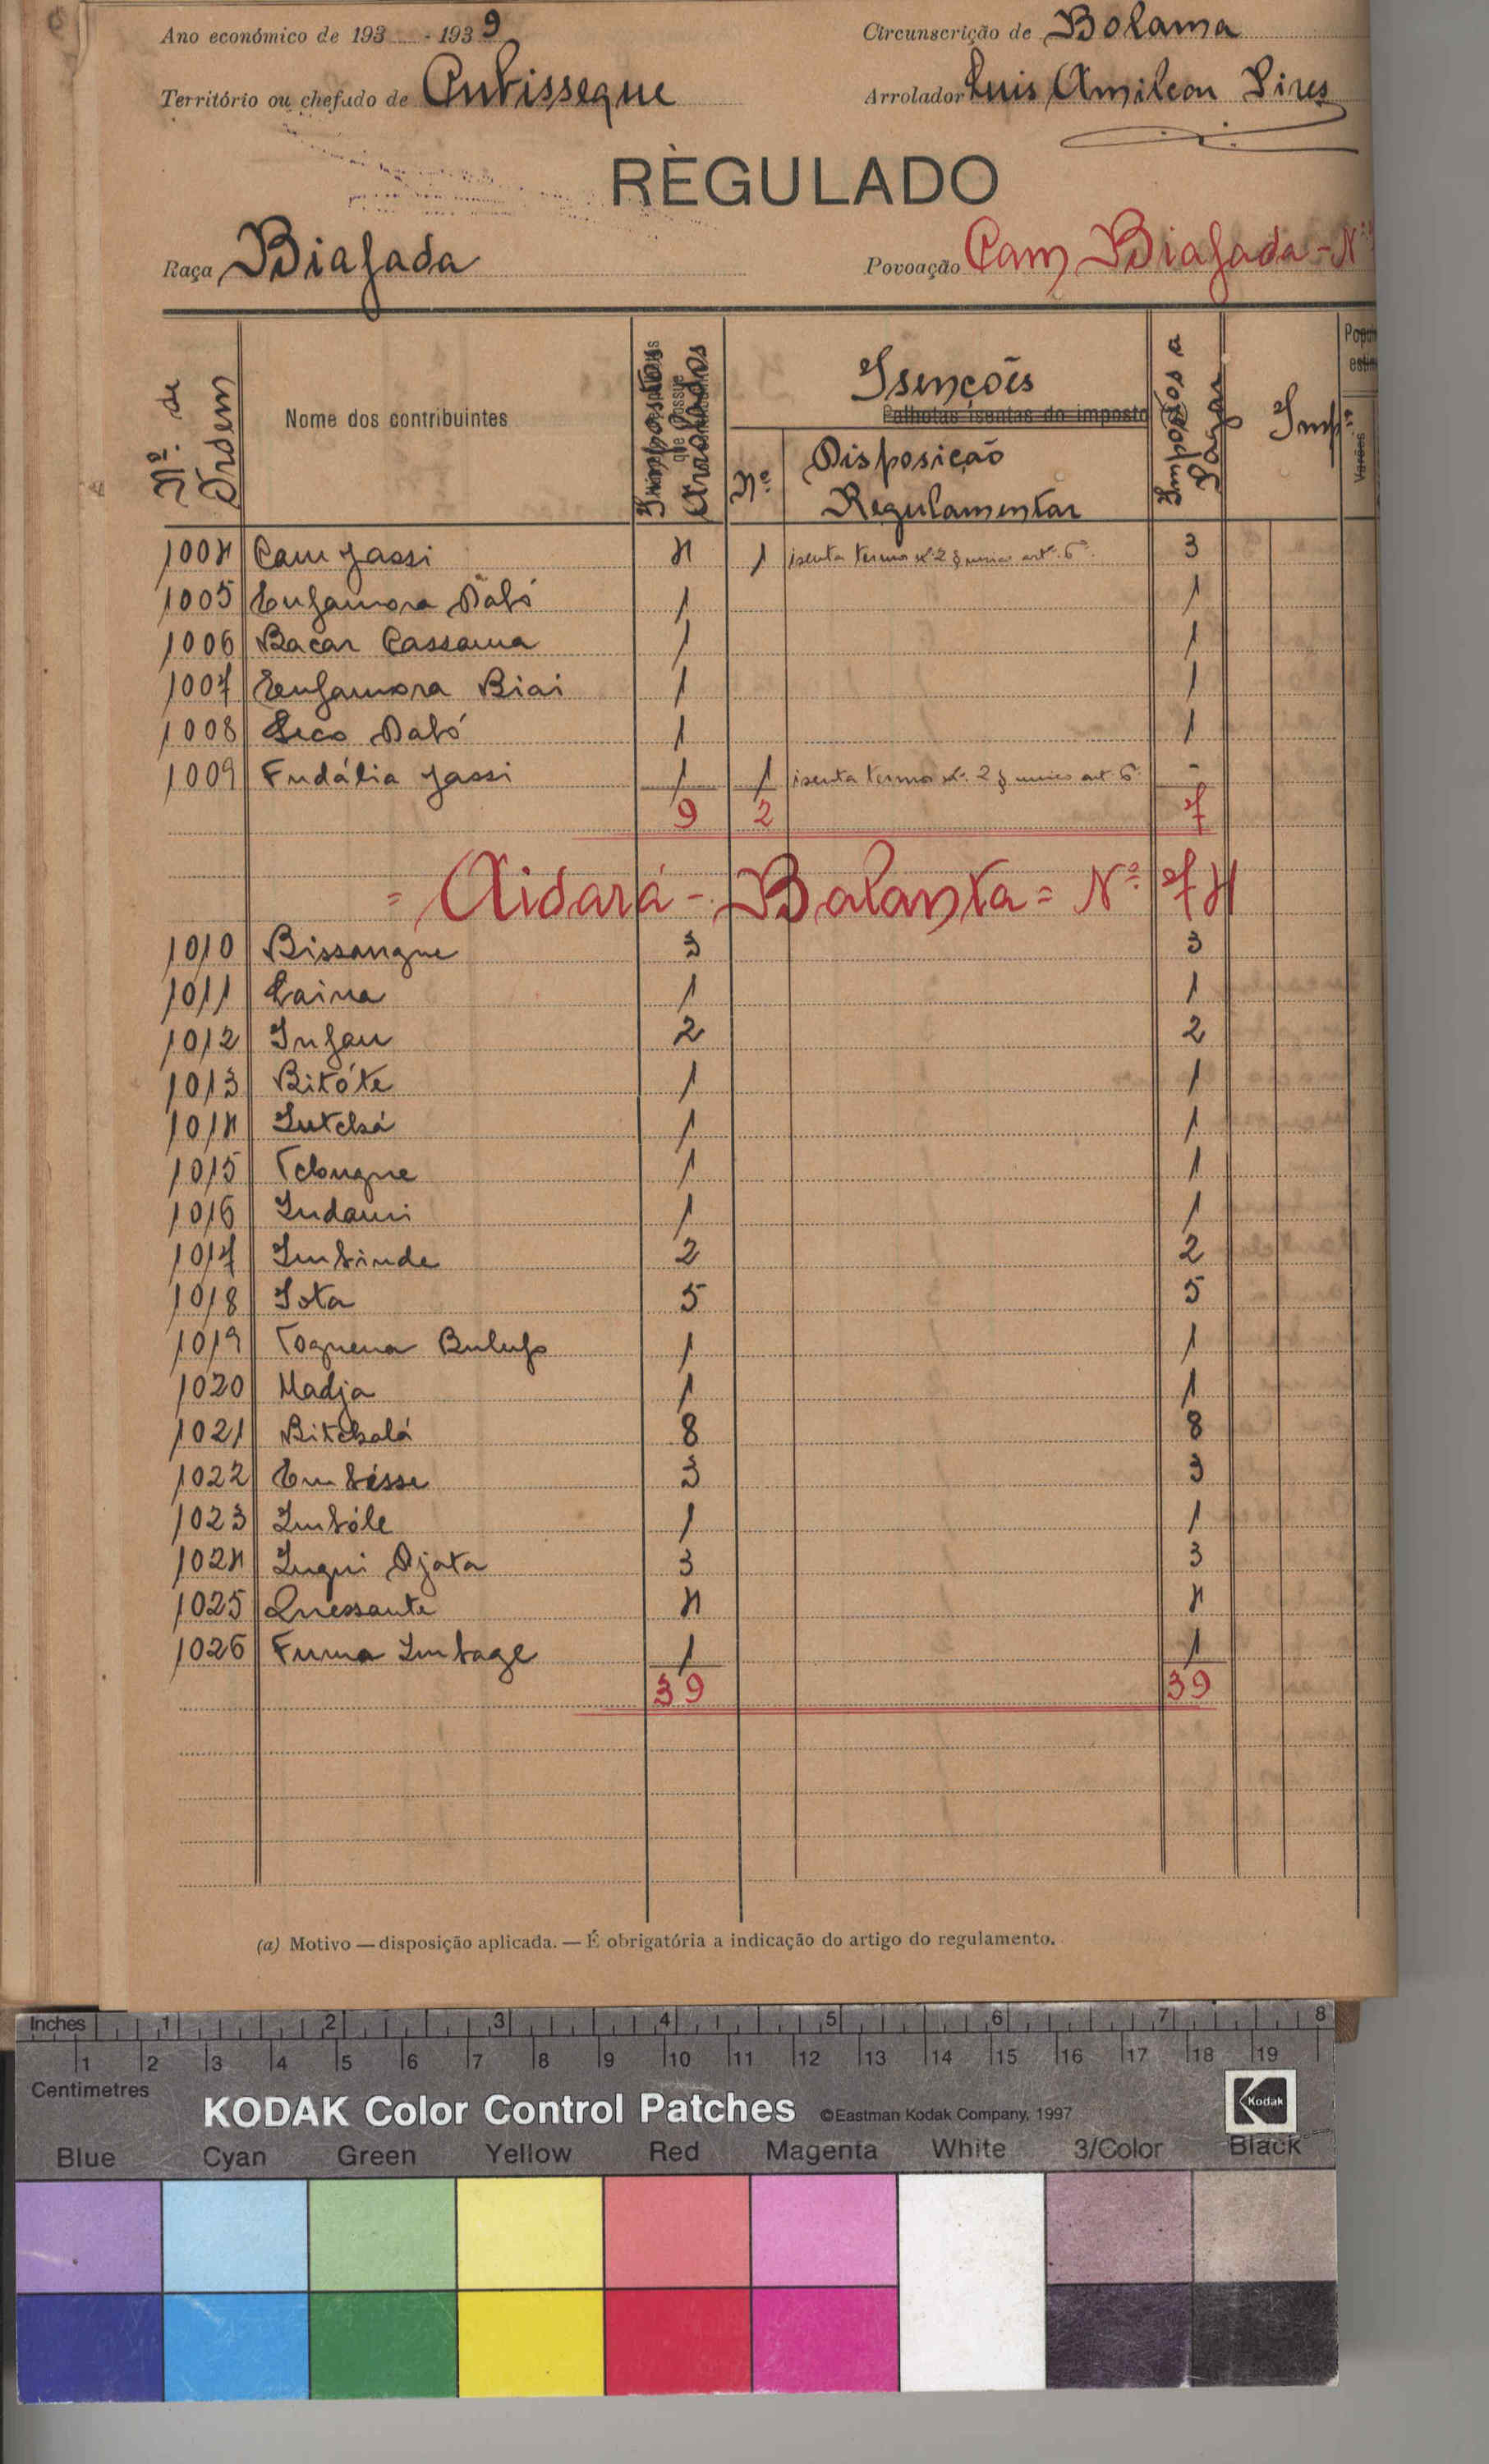 Ano económico de 193 - 1939 Circunscrição de Bolama
Território ou chefado de Cubisseque Arrolador Luis Amilcar Pires
RÈGULADO
Raça Biafada Povoação Cam Biafada - Nº
Nº. de Ordem Nome dos contribuintes Impostos Arrolados Isenções Palhotas isentas do imposto Nº Disposição Regulamentar Impostos a Pagar
1004 Cam Jassi 4 1 isenta termo nº 2 § unico artº. 6º. 3
1005 Enfamora Dabó 1 1
1006 Bacar Cassama 1 1
1007 Enfamora Biai 1 1
1008 Seco Dabó 1 1
1009 Fudália Jassi 1 1 isenta termo nº. 2 § unico art. 6º. -
9 2 7
= Aidará - Balanta = Nº. 74
1010 Bissangue 3 3
1011 Laina 1 1
1012 Infau 2 2
1013 Bitóte 1 1
1014 Intchá 1 1
1015 Tchugue 1 1
1016 Indami 1 1
1017 Imbinde 2 2
1018 Iota 5 5
1019 Toguena Bulufo 1 1
1020 Madja 1 1
1021 Bitchalá 8 8
1022 Embésse 3 3
1023 Imbóle 1 1
1024 Ingui Djata 3 3
1025 Quessante 4 4
1026 Fuma Imbage 1 1
39 39
(a) Motivo — disposição aplicada. — É obrigatória a indicação do artigo do regulamento.
Inches 1 2 3 4 5 6 7 8
1 2 3 4 5 6 7 8 9 10 11 12 13 14 15 16 17 18 19
Centimetres
KODAK Color Control Patches ©Eastman Kodak Company, 1997 Kodak
Blue Cyan Green Yellow Red Magenta White 3/Color Black